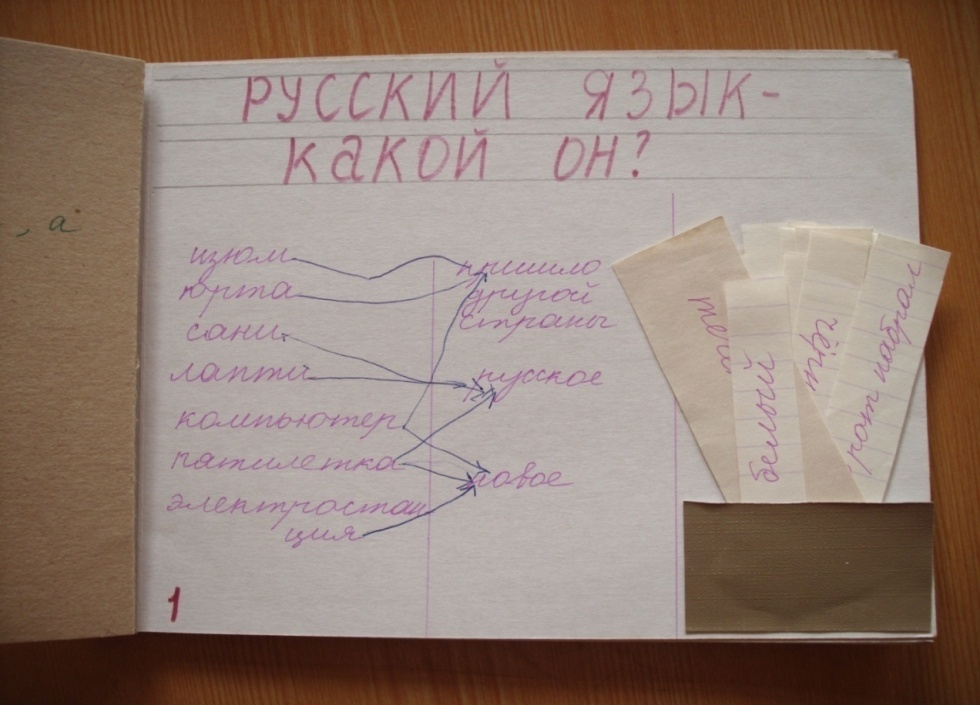 , а
РУССКИЙ ЯЗЫК-
КАКОЙ ОН?
изюм
юрта
сани
лапти
компьютер
пятилетка
электростан
ция
пришло
другой
страны
русское
новое
белый
рот набрал
1